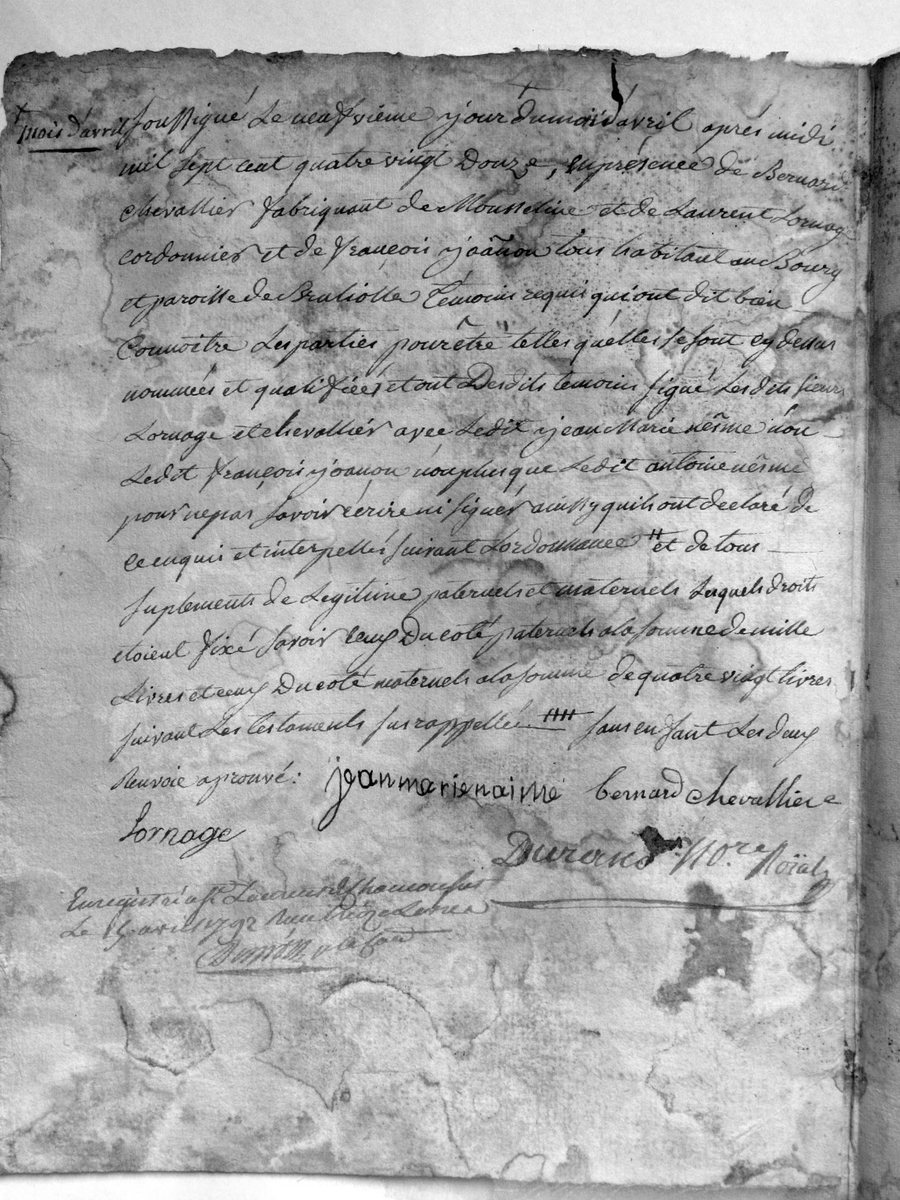 mois d'avril
soussigné Le neufvieme jour du mois d'avril après midi
mil sept cent quatre vingt Douze, en présence de Bernard
chevallier fabriquant de Mousseline et de Laurent Lornage
cordonnier et de françois joânon tous habitant au Bourg
et paroisse de Brulliolle Témoins requis qui ont dit bien
Connoitre Les parties pour être telles quélles se sont cy dessus
nommées et qualifiées et ont Desdits temoins signé Les dits sieurs
Lornage et chevallier avec Ledit jean Marie nêsme non
Ledit françois joanon non plus que Ledit antoine nêsme
pour ne pas savoir écrire ni signer ainssy quils ont declaré de
ce enquis et interpellés suivant Lordonnance # et de tous
suplements de Legitime paternels et maternels Lesquels droits
etoient fixé savoir ceux Du coté paternels a la somme de mille
Livres et ceux Du coté maternels a la somme de quatre vingt livres
suivant Les testaments susrappellée sans enfant Les deux
Renvoie aprouvé: jean marie naime bernard chevallier
Lornage
Durand No.re Roïal
Enregistré a St Laurent de Chamousset
Le avril 1792